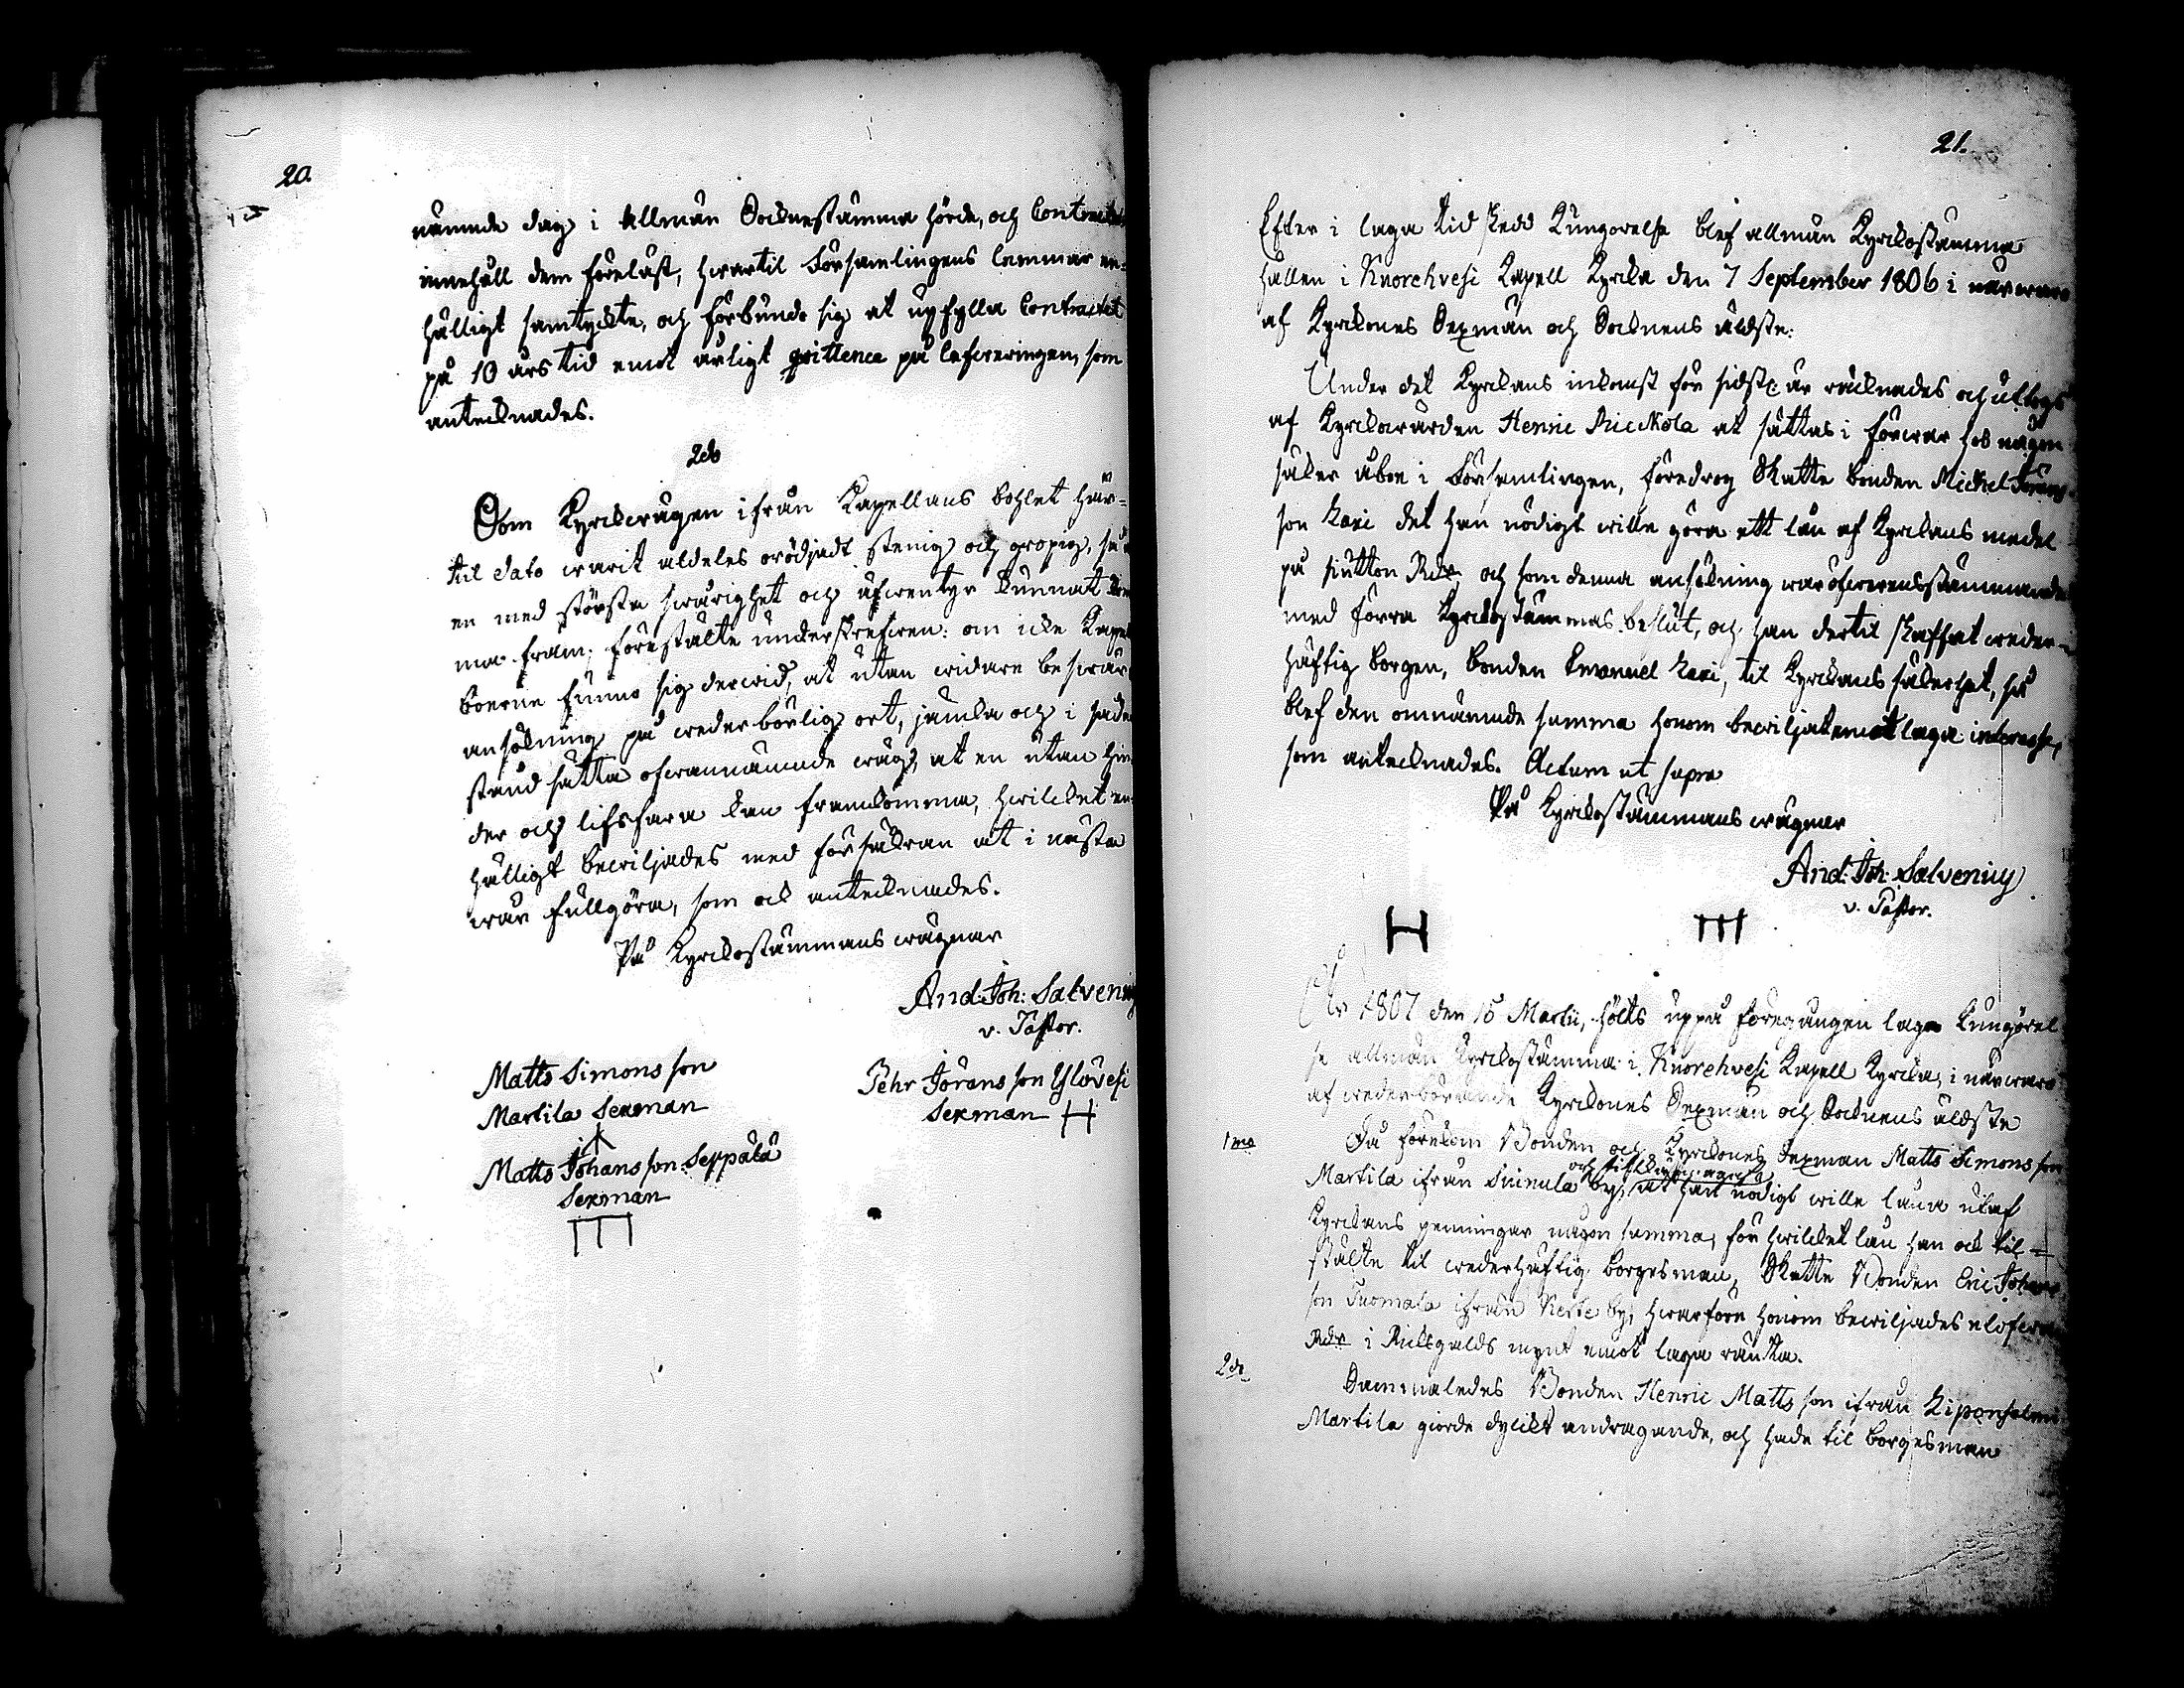 20.
nämnde dag i allmän Socknestämma hörde, och Contractets
innehåll dem föreläst, hwartil Församlingens lemmar en-
hälligt samtyckte, och förbundo sig at upfylla Contractet
på 10 års tid emot årligt qvittence på lefwereringen, som
antecknades.
2do
Som Kyrckowägen ifrån Kapellans bohlet här-
til dato warit aldeles orödjadt stenig och gropig, så
en med största swårighet och äfwentyr kunnat
ma fram; förestälte underskrefwen: om icke Kapel
boerne funno sig derwid, at utan widare beswär
ansökning på wederbörlig ort, jämka och i
stånd sätta ofwannämnde wäg, at en utan hin-
der och lifsfara kan framkomma, hwilcket en-
hälligt bewiljades med försäkran at i nästa
wår fullgöra, som ock antecknades.
På Kyrckostämmans wägnar
And: Joh: Salvenius
v. Pastor.
Matts Simons son
Martila Sexman
Pehr Jörans son Ylövesi
Sexman H
Matts Johans son Seppälä
Sexman
21.
Efter i laga tid skedd Kungörelse blef allmän Kyrckostämma
hållen i Knorehvesi Kapell Kyrcka den 7 September 1806 i närwaro
af Kyrckones Sexmän och Socknens äldste:
Under det Kyrckans inkomst för sidste år räcknades och uttogs
af Kyrckowärden Henric Rieckola at sättas i förwar hos någon
säker åboe i Församlingen, föredrog Skatte bonden Michel Jörans
son Kaxi det han nödigt wille göra ett lån af Kyrckans medel
på siutton Rdr, och som denna ansökning war öfwerensstämmande
med förra Kyrckostämmas beslut, och han dertil skaffat weder-
häftig borgen, bonden Emanuel Kaxi, til Kyrckans säkerhet, så
blef den omnämnde summa honom bewiljat emot laga interesse,
som antecknades. Actum ut supra
På Kyrckostämmans wägnar
And: Joh: Salvenius
v. Pastor.
H
År 1807 den 15 Martii, hölts uppå föregången laga Kungörel
se allmän Kyrckostämma i Knorehvesi Kapell Kyrcka, i närwaro
af wederbörande Kyrckones Sexmän och Socknens äldste
1mo Då förekom Bonden och Kyrckones Sexman Matts Simons son
Martila ifrån Suinula by, at han nödigt wille låna utaf
Kyrckans penningar någon summa, för hwilcket lån han ock til-
stälte til wederhäftig borgesman, Skatte Bonden Eric Johans
son Tuomala ifrån by, hwarföre honom bewiljades elofwa
Rdr i Riksgälds mynt emot laga ränta.
2do Sammaledes Bonden Henric Matts son ifrån
Martila giorde dylikt andragande, och hade til borgesman